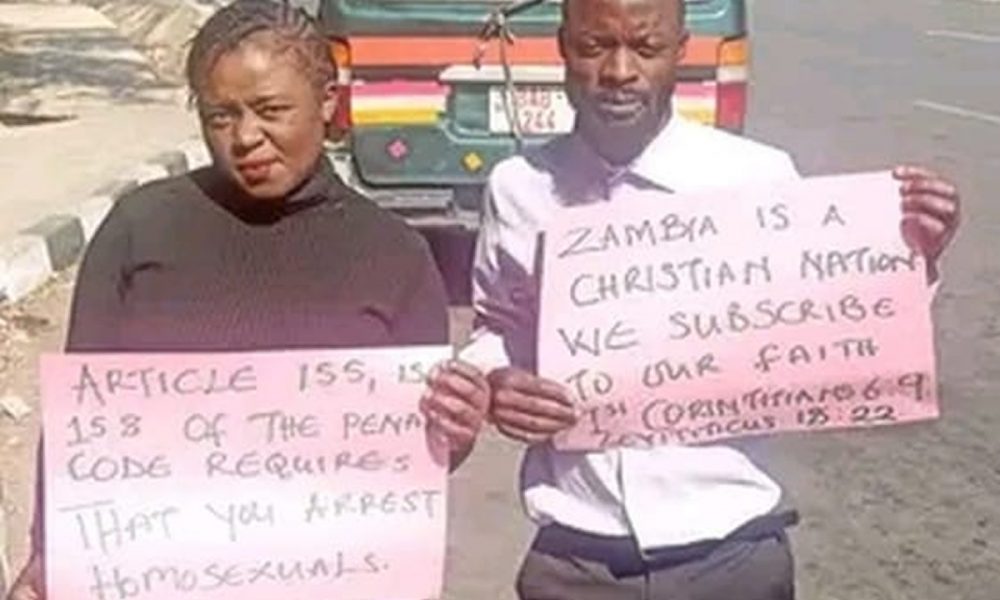 BAD
244
ARTICLE 155,
158 OF THE PENA
CODE REQUIRES
THAT YOU ARREST
HOMOSEXUALS.
ZAMBIA IS A
CHRISTIAN NATION
WE SUBSCRIBE
TO OUR FAITH
1ST CORINTITIANS 6:9
LEVITITICUS 18:22